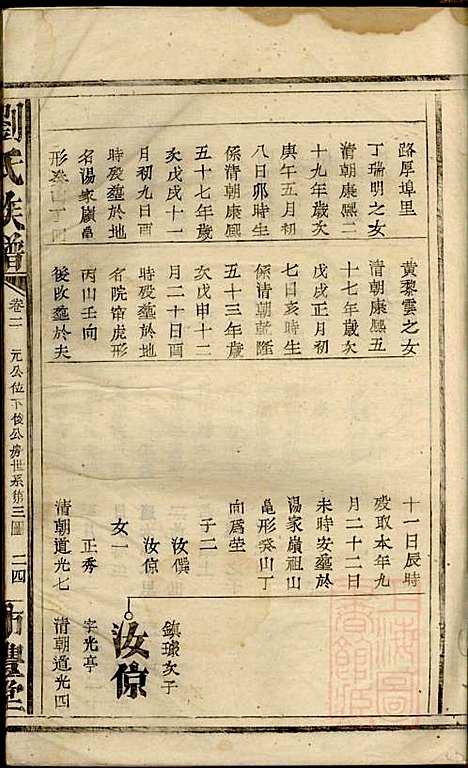 路厚埠里
丁瑞明之女
清朝康熙二
十九年歲次
庚午五月初
八日卯時生
係清朝康熙
五十七年歲
次戊戌十一
月初九日酉
時殁塟於地
名湯家嶺黽
形癸山丁向
黃黎雲之女
清朝康熙五
十七年歲次
戊戌正月初
七日亥時生
係清朝乾隆
五十三年歲
次戊申十二
月二十日酉
時殁塟於地
名院馆虎形
丙山壬向
後改塟於夫
十一日辰時
殁取本年九
月二十二日
未時安塟於
湯家嶺祖山
黽形癸山丁
向爲塋
子二
汝僎
汝倞
女一
正秀
清朝道光七
鎮瑔次子
汝倞
字光亭
清朝道光四
劉氏族譜
卷二
元公位下俊公房世系第三圖
二四
上海圖書館藏